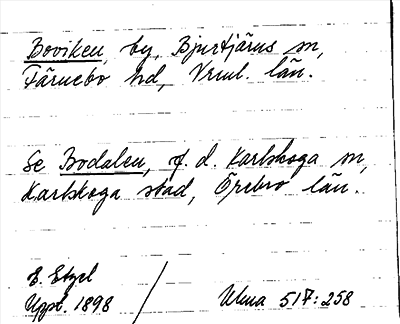 Boviken, by, Bjurtjärns sn,
Färnebo hd, Vrml. län.
Se Bodalen, f. d. Karlskoga sn,
Karlskoga stad, Örebro län.
E. Etzel
Uppt. 1898
Ulma 517:258